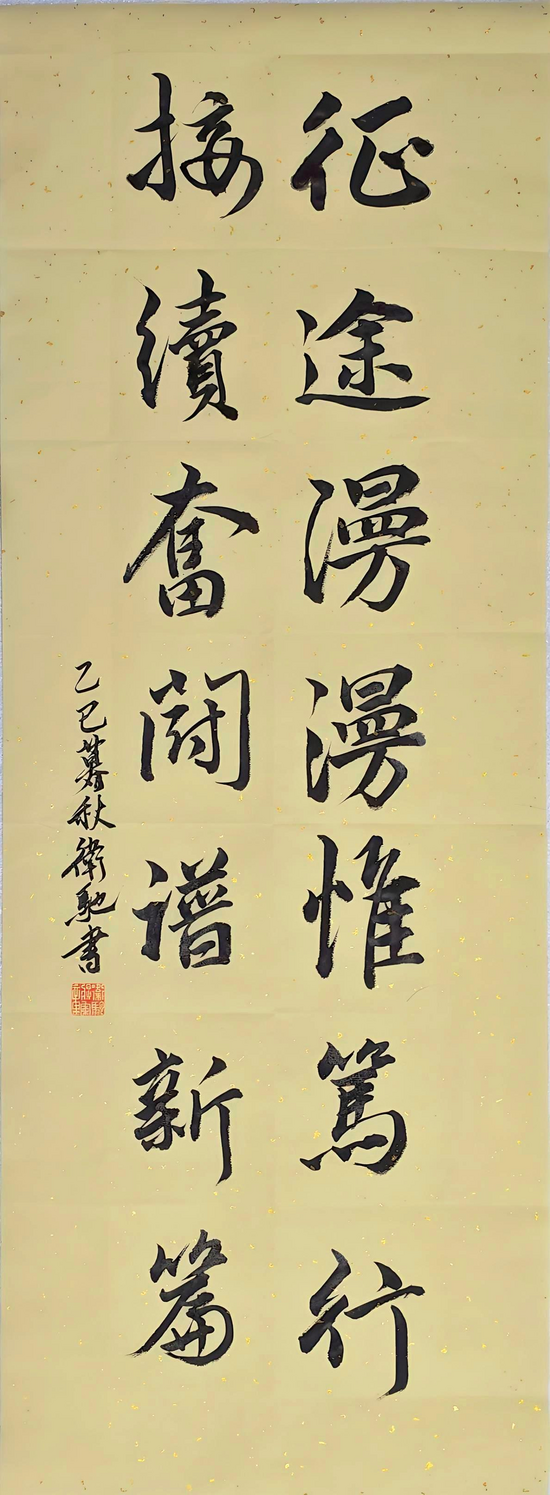 征途漫漫惟篤行
接續奮鬪谱新篇
乙巳暮秋衛馳書